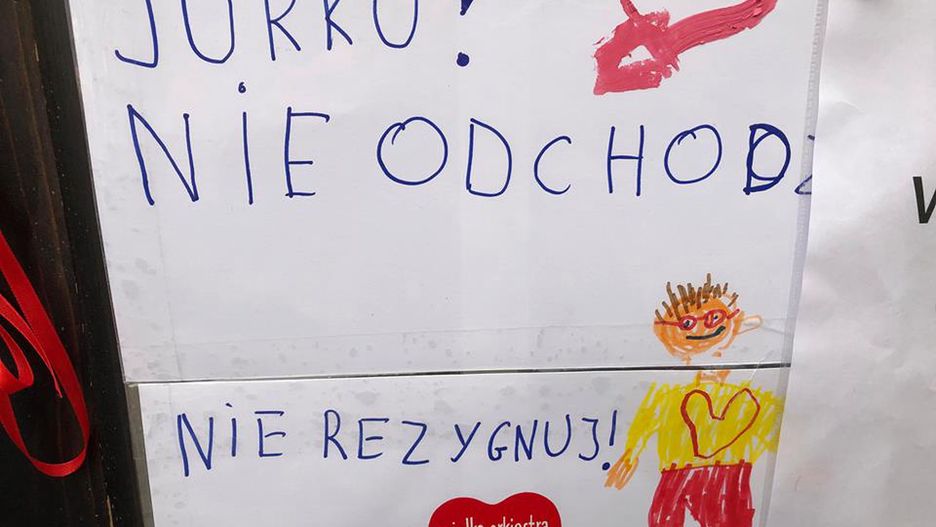 JURKU!
NIE ODCHODŹ
NIE REZYGNUJ!
orkiestra